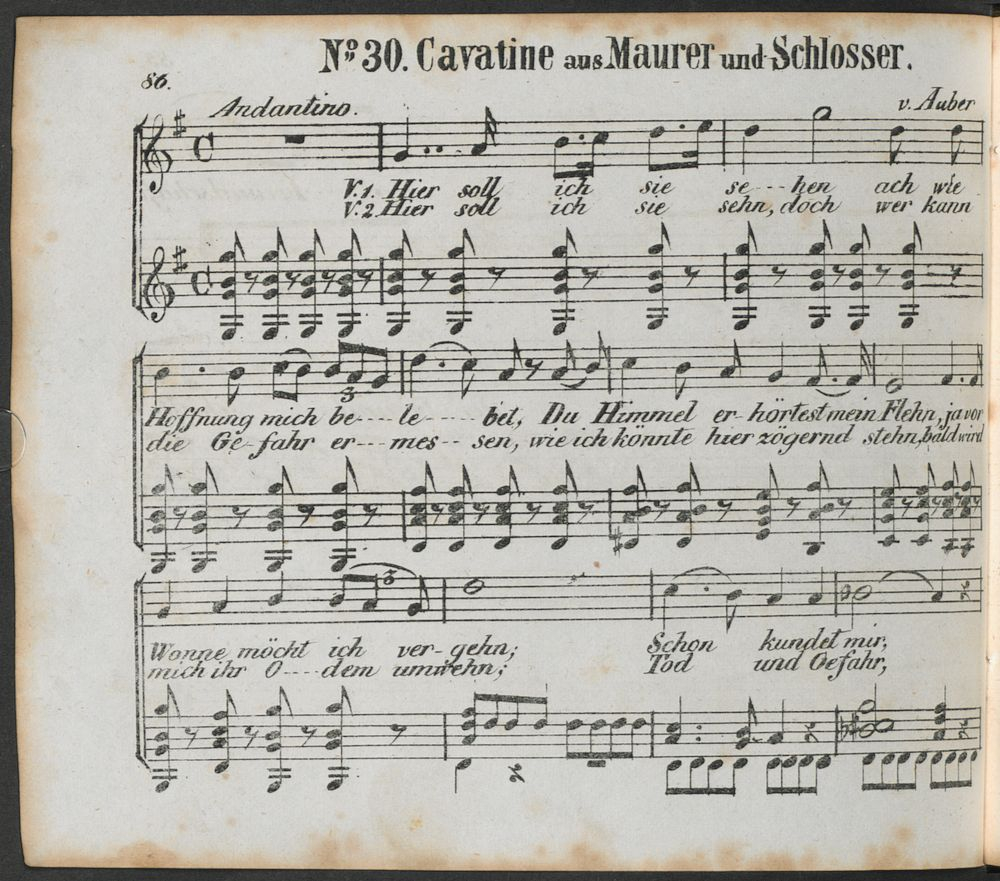 No. 30. Cavatine aus Maurer und Schlosser.
86.
Andantino.
v. Auber
V.1. Hier soll ich sie se---hen ach wie
V.2. Hier soll ich sie sehn, doch wer kann
Hoffnung mich be---le----bet, Du Himmel er-hörtest mein Flehn, ja vor
die Ge fahr er----mes--sen, wie ich könnte hier zögernd stehn, bald wird
3
Wonne möcht ich ver-gehn; Schon kundet mir,
mich ihr O----dem umwehn; Tod und Gefahr,